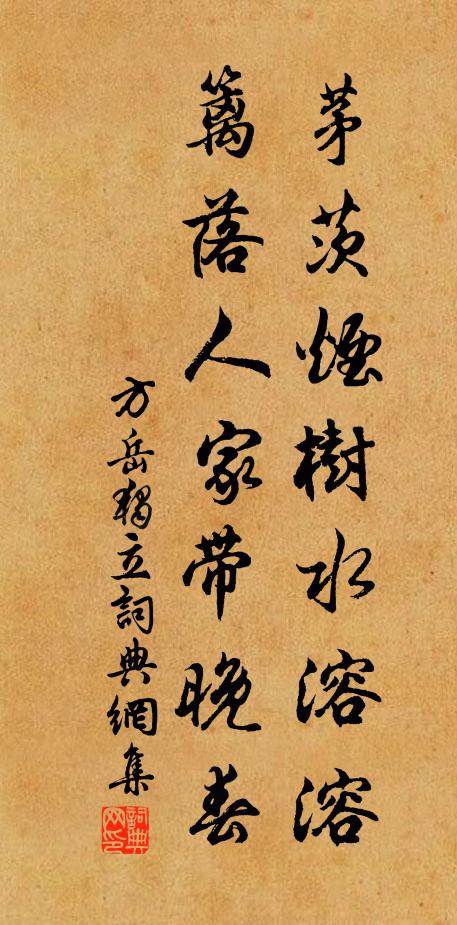 茅茨煙樹水溶溶
籬落人家帶晚春
方岳獨立詞典網集
詞典網印